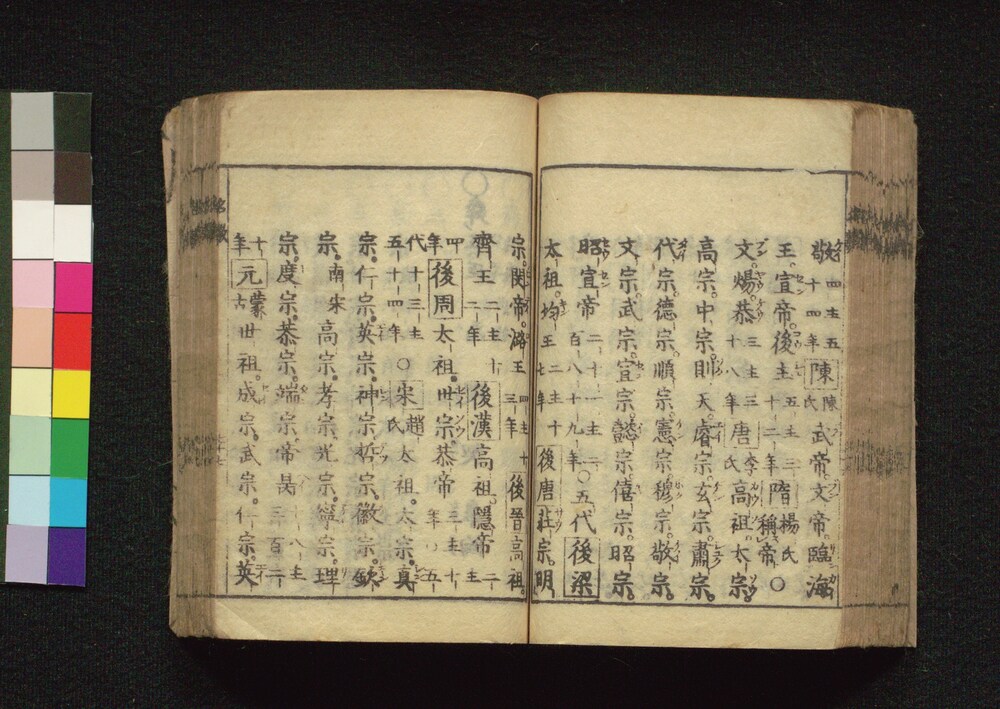 敬 四主五十四年 陳 陳氏 武帝文帝臨海
王宣帝後主 五主三十二年 隋 楊氏 稱帝〇
文煬恭 三主三十八年 唐 李氏 高祖太宗
高宗中宗則天睿宗玄宗肅宗
代宗德宗順宗憲宗穆宗敬宗
文宗武宗宣宗懿宗僖宗昭宗
昭宣帝 二十一主二百八十九年 〇五代 後梁
太祖均王 二主十七年 後唐 莊宗明
宗閔帝潞王 四主十三年 後晉 高祖
齊王 二主十二年 後漢 高祖隱帝 二主
四年 後周 太祖世宗恭帝 三主十年 五
代十三主五十四年 〇宋 趙氏 太祖太宗真
宗仁宗英宗神宗哲宗徽宗欽
宗南宋高宗孝宗光宗寧宗理
宗度宗恭宗端宗帝昺 十八主三百二
十年 元 蒙古 世祖成宗武宗仁宗英